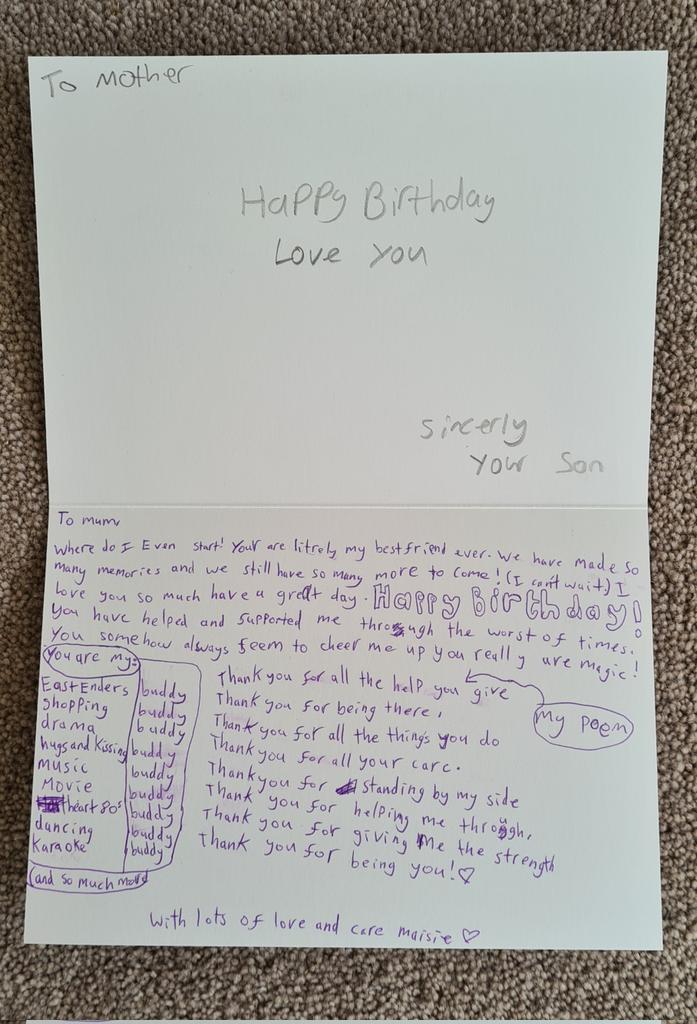 To Mother
Happy Birthday
Love you
sincerly
your Son
To mum
Where do I Even start! Your are litrely my best friend ever. We have made so
many memories and we still have so many more to come! (I can't wait) I
love you so much have a great day. Happy Birthday!
You have helped and supported me through the worst of times.
You somehow always seem to cheer me up you really are magic!
You are my:
EastEnders buddy
shopping buddy
drama buddy
hugs and kissing buddy
music buddy
Movie buddy
heart 80s buddy
dancing buddy
karaoke buddy
(and so much more)
my poem
Thank you for all the help you give
Thank you for being there,
Thank you for all the things you do
Thank you for all your care.
Thank you for standing by my side
Thank you for helping me through,
Thank you for giving me the strength
Thank you for being you! ♡
With lots of love and care maisie ♡